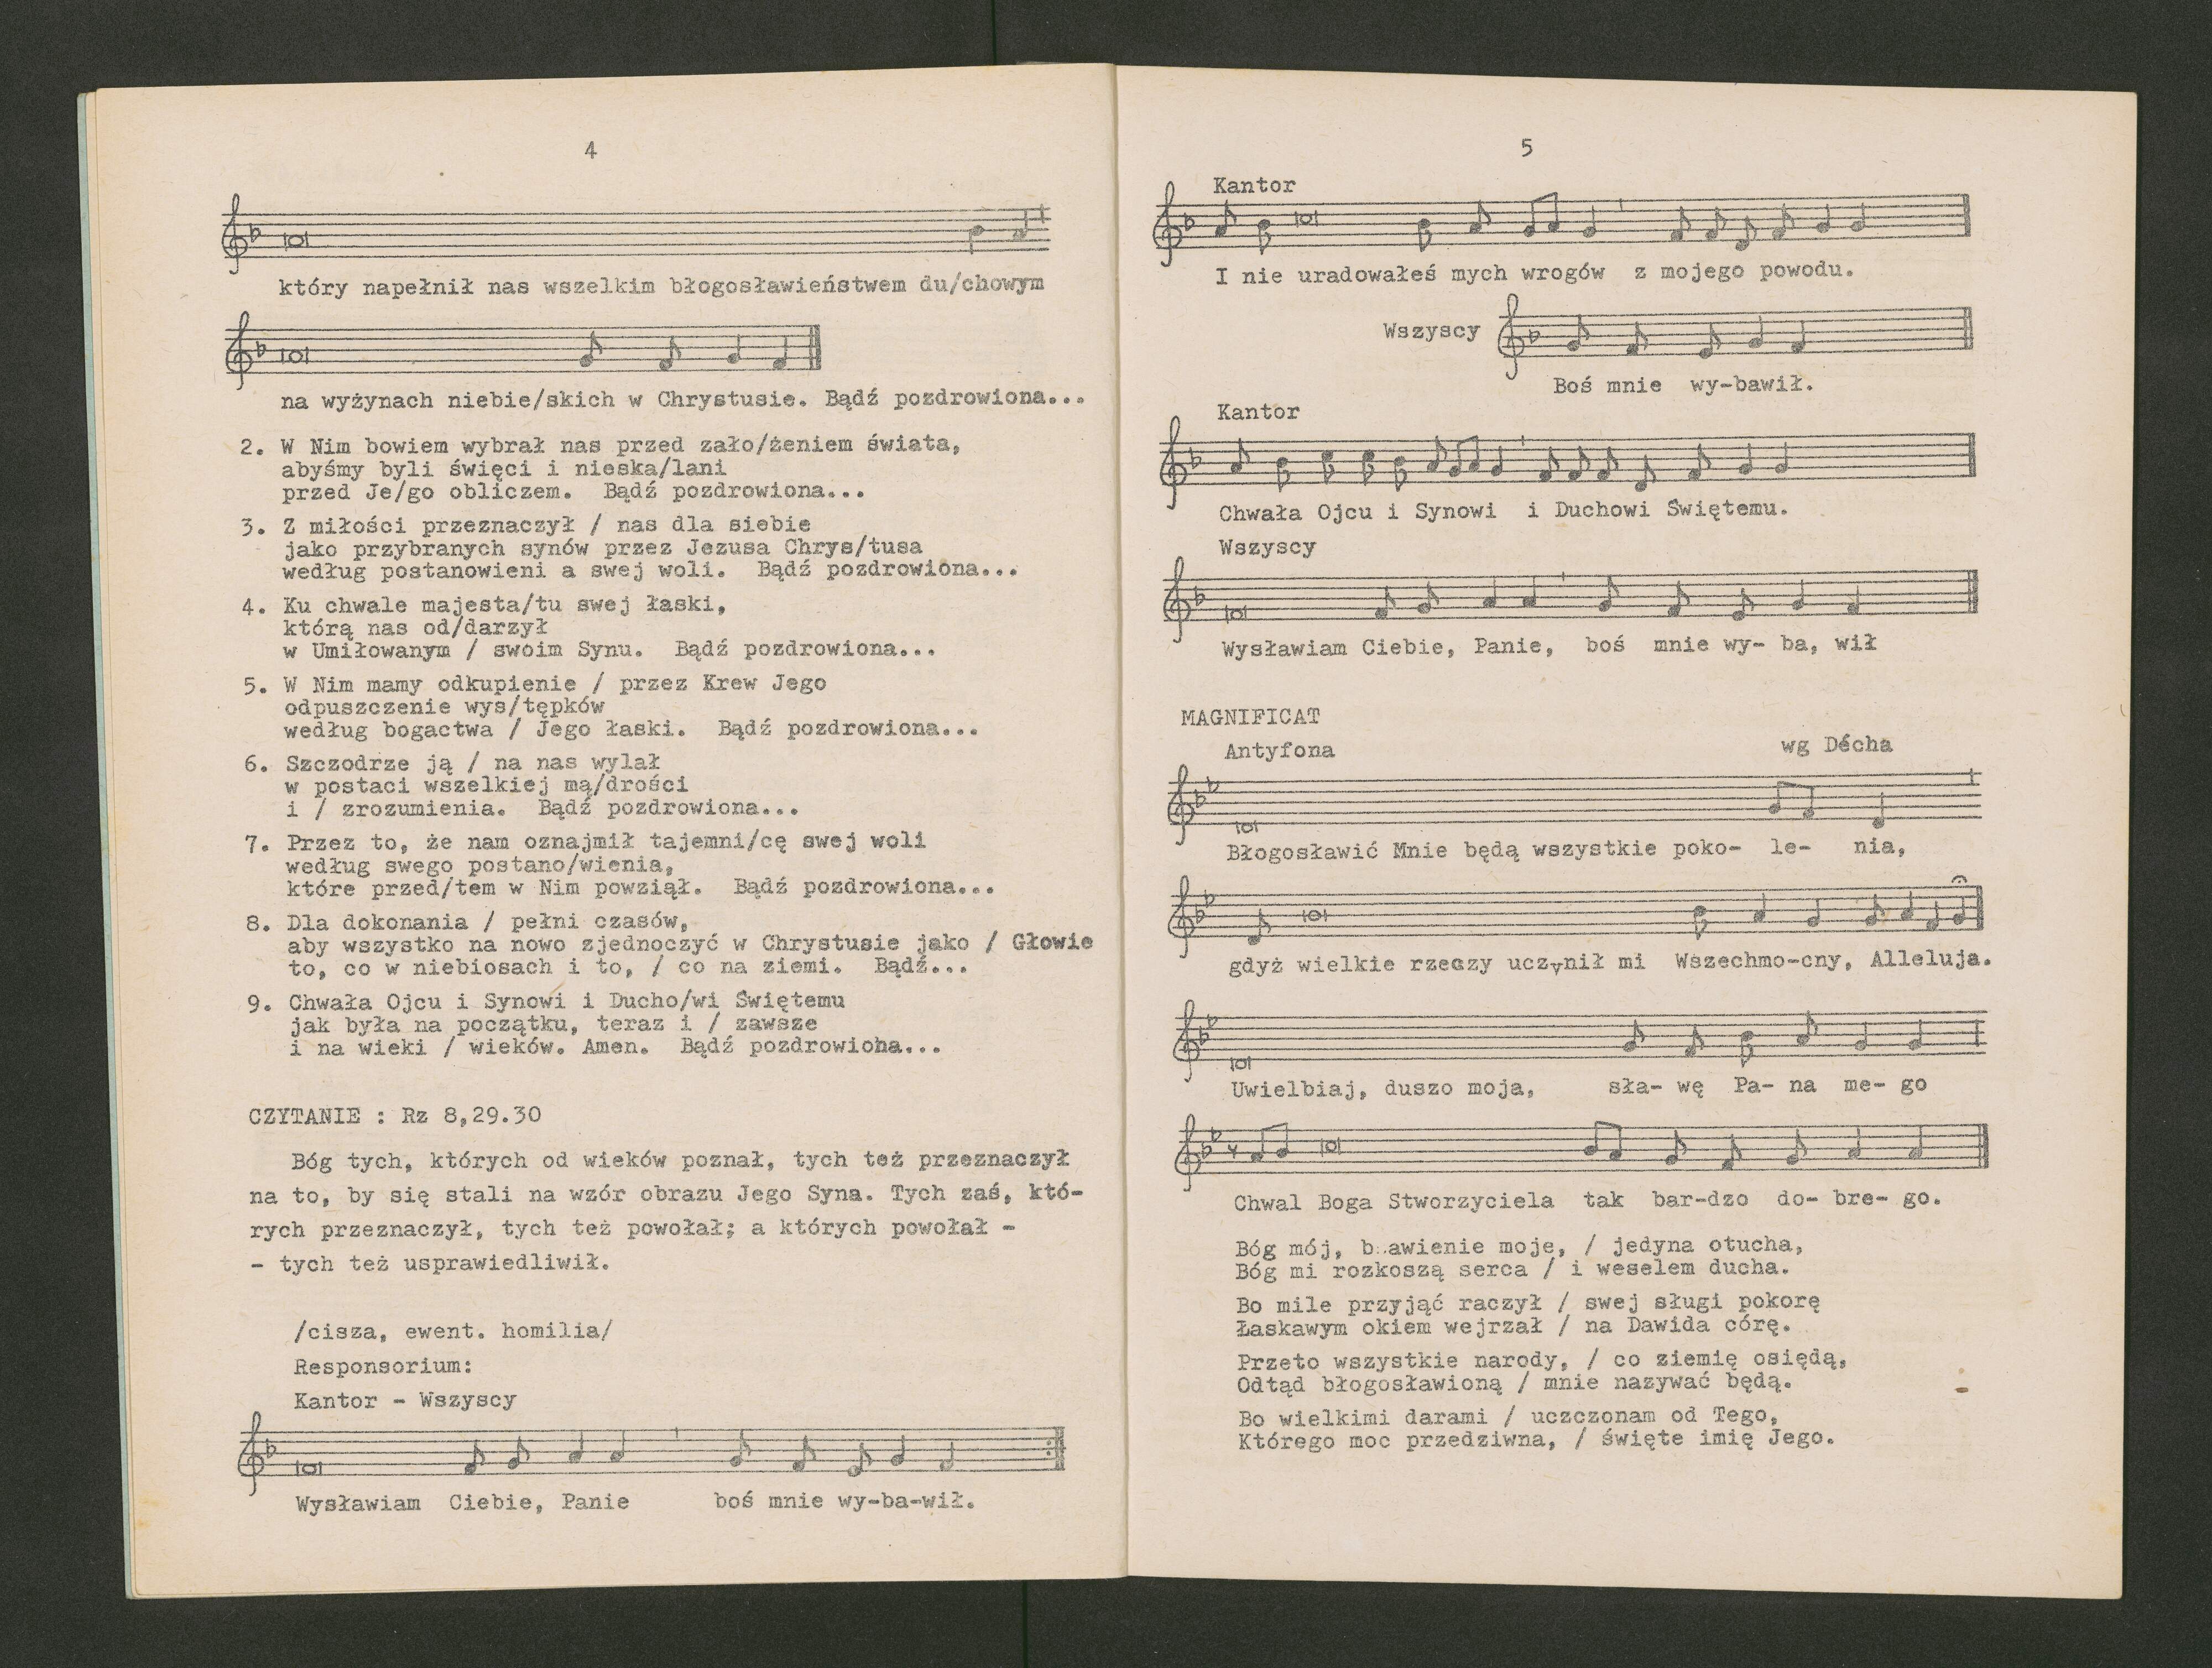 4
który napełnił nas wszelkim błogosławieństwem du/chowym
na wyżynach niebie/skich w Chrystusie. Bądź pozdrowiona...
2. W Nim bowiem wybrał nas przed zało/żeniem świata,
abyśmy byli święci i nieska/lani
przed Je/go obliczem. Bądź pozdrowiona...
3. Z miłości przeznaczył / nas dla siebie
jako przybranych synów przez Jezusa Chrys/tusa
według postanowieni a swej woli. Bądź pozdrowiona...
4. Ku chwale majesta/tu swej łaski,
którą nas od/darzył
w Umiłowanym / swoim Synu. Bądź pozdrowiona...
5. W Nim mamy odkupienie / przez Krew Jego
odpuszczenie wys/tępków
według bogactwa / Jego łaski. Bądź pozdrowiona...
6. Szczodrze ją / na nas wylał
w postaci wszelkiej mą/drości
i / zrozumienia. Bądź pozdrowiona...
7. Przez to, że nam oznajmił tajemni/cę swej woli
według swego postano/wienia,
które przed/tem w Nim powziął. Bądź pozdrowiona...
8. Dla dokonania / pełni czasów,
aby wszystko na nowo zjednoczyć w Chrystusie jako / Głowie
to, co w niebiosach i to, / co na ziemi. Bądź...
9. Chwała Ojcu i Synowi i Ducho/wi Świętemu
jak była na początku, teraz i / zawsze
i na wieki / wieków. Amen. Bądź pozdrowioha...
CZYTANIE : Rz 8,29.30
Bóg tych, których od wieków poznał, tych też przeznaczył
na to, by się stali na wzór obrazu Jego Syna. Tych zaś, któ-
rych przeznaczył, tych też powołał; a których powołał -
- tych też usprawiedliwił.
/cisza, ewent. homilia/
Responsorium:
Kantor - Wszyscy
Wysławiam Ciebie, Panie boś mnie wy-ba-wił.
5
Kantor
I nie uradowałeś mych wrogów z mojego powodu.
Wszyscy
Boś mnie wy-bawił.
Kantor
Chwała Ojcu i Synowi i Duchowi Świętemu.
Wszyscy
Wysławiam Ciebie, Panie, boś mnie wy- ba, wił
MAGNIFICAT
Antyfona wg Décha
Błogosławić Mnie będą wszystkie poko- le- nia,
gdyż wielkie rzeczy uczynił mi Wszechmo-cny, Alleluja.
Uwielbiaj, duszo moja, sła- wę Pa- na me- go
Chwal Boga Stworzyciela tak bar-dzo do- bre- go.
Bóg mój, moje, / jedyna otucha,
Bóg mi rozkoszą serca / i weselem ducha.
Bo mile przyjąć raczył / swej sługi pokorę
Łaskawym okiem wejrzał / na Dawida córę.
Przeto wszystkie narody, / co ziemię osiędą,
Odtąd błogosławioną / mnie nazywać będą.
Bo wielkimi darami / uczczonam od Tego,
Którego moc przedziwna, / święte imię Jego.